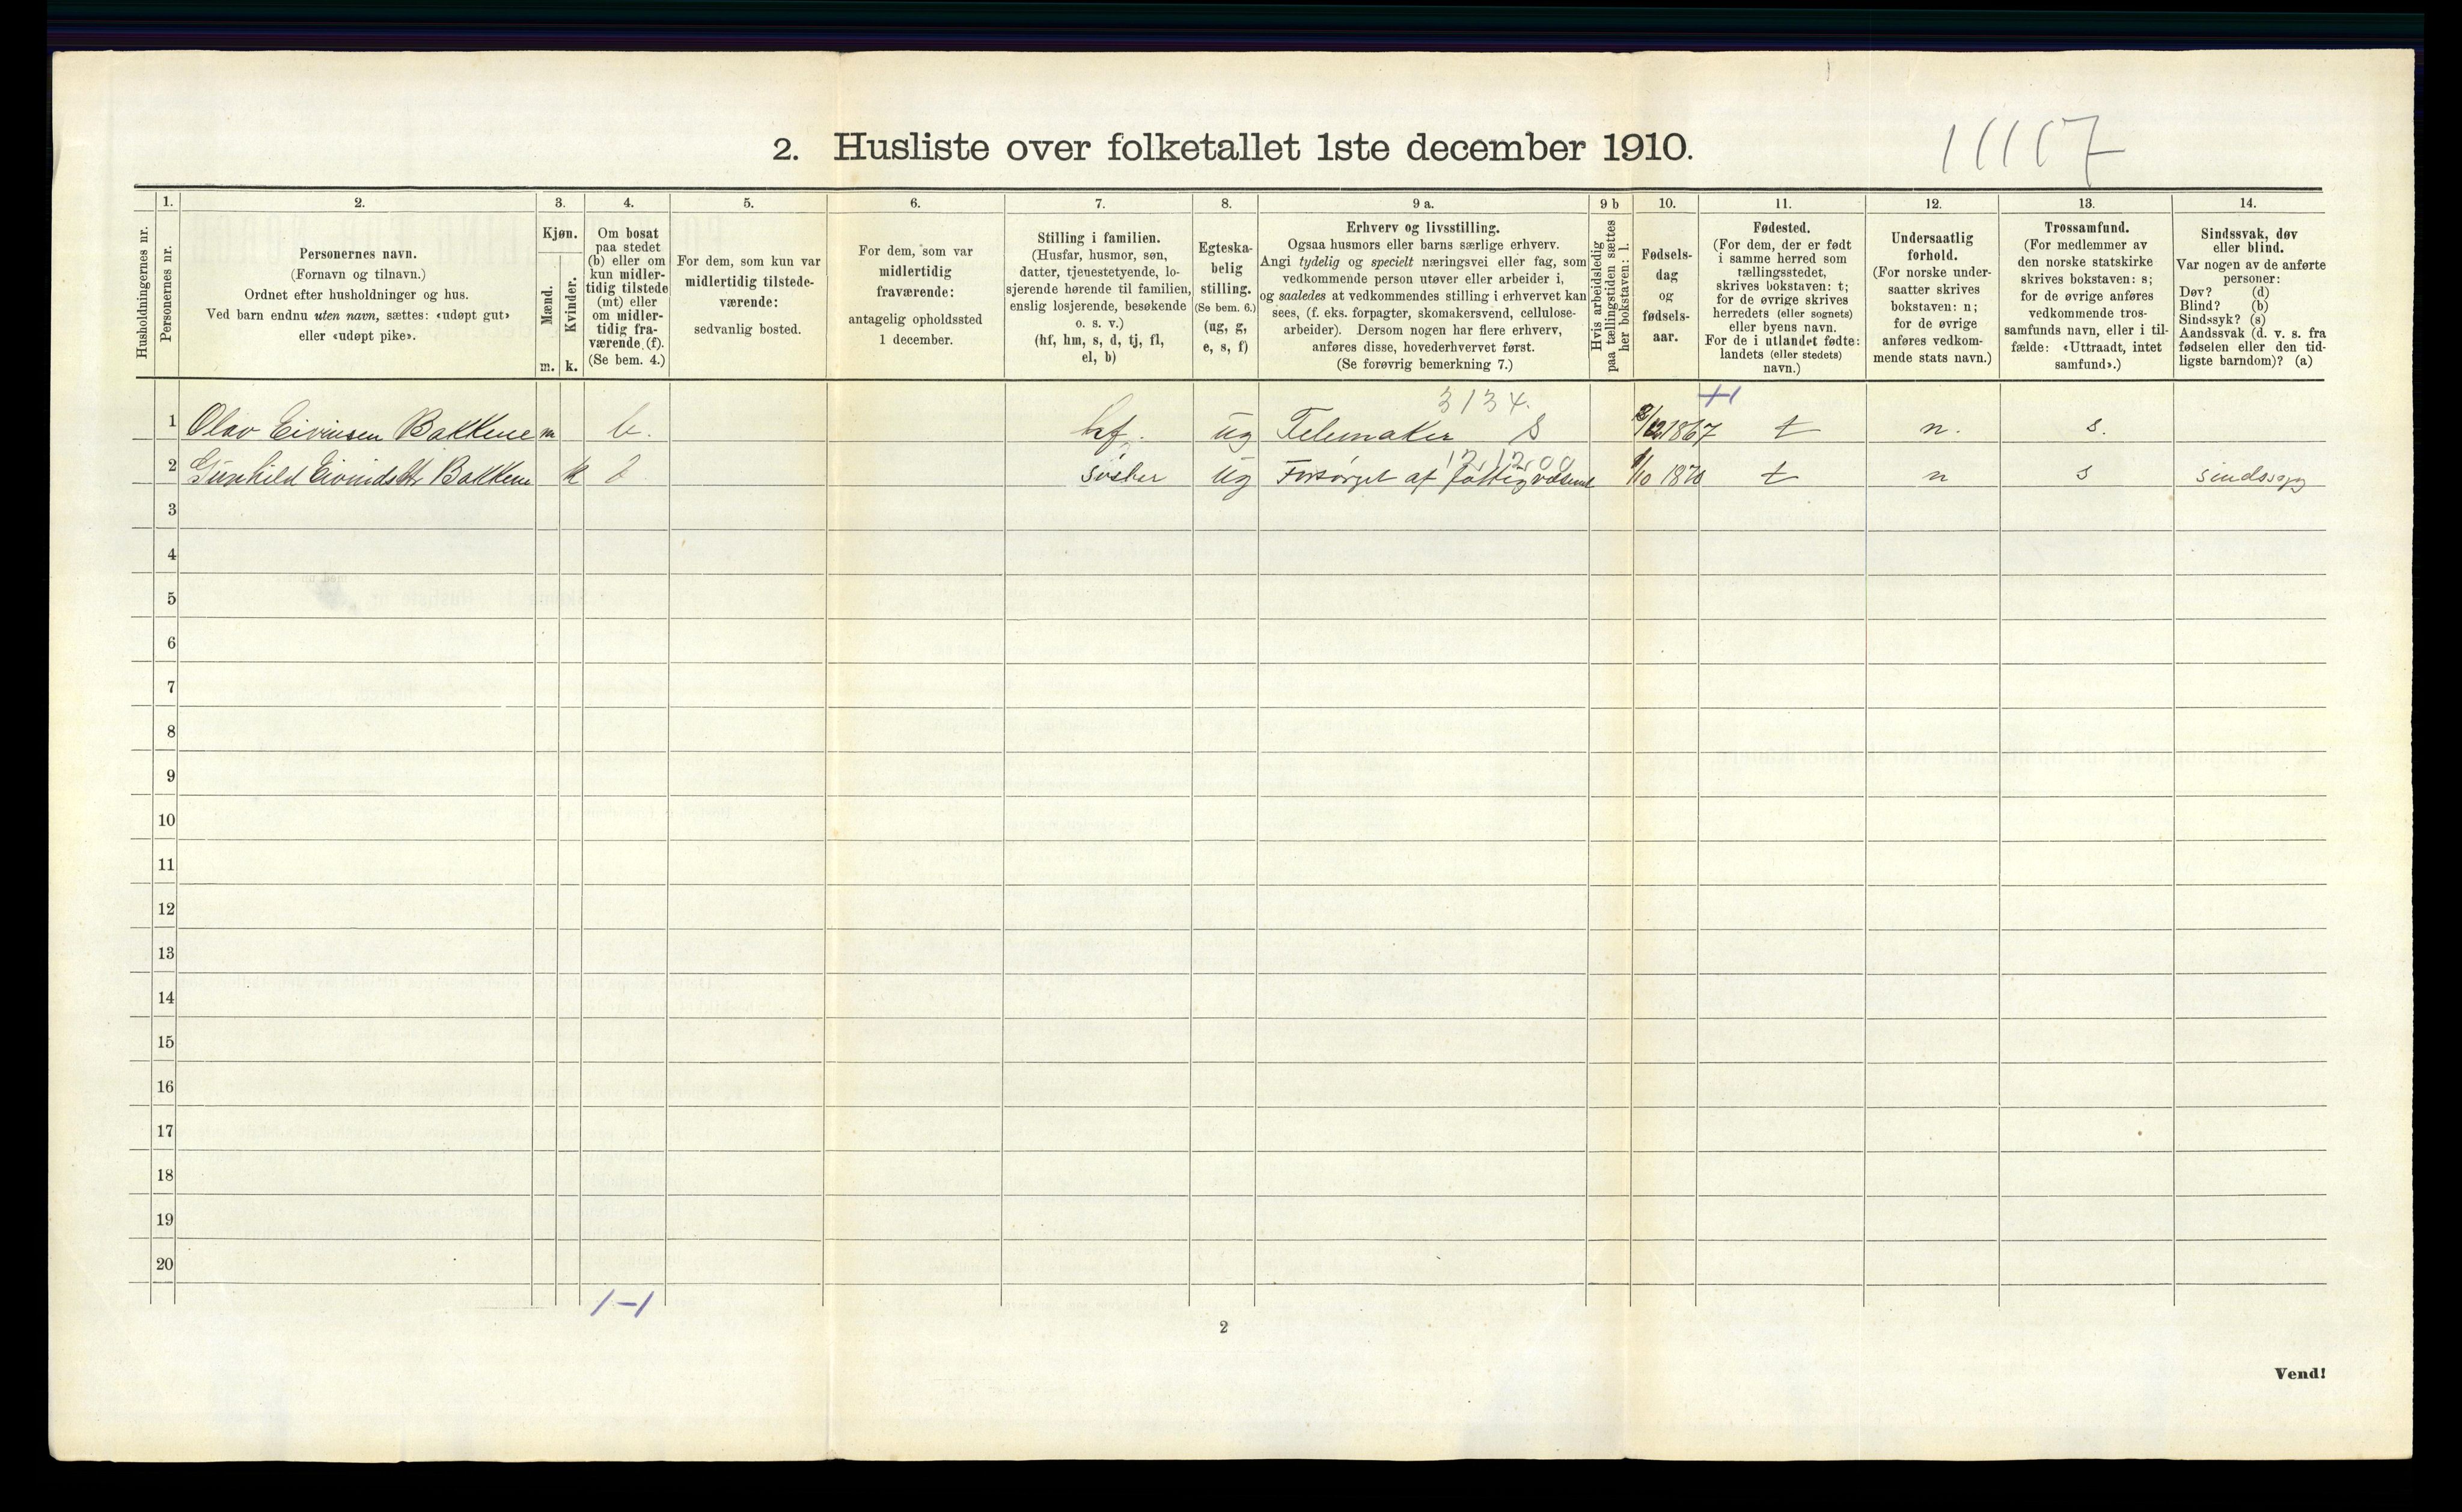 11117
2. Husliste over folketallet 1ste december 1910.
Husholdningernes nr.
1.
Personernes nr.
2.
Personernes navn.
(Fornavn og tilnavn.)
Ordnet efter husholdninger og hus.
Ved barn endnu uten navn, sættes: «udøpt gut»
eller «udøpt pike».
3.
Kjøn.
Mænd.
Kvinder.
m. k.
4.
Om bosat
paa stedet
(b) eller om
kun midler-
tidig tilstede
(mt) eller
om midler-
tidig fra-
værende (f).
(Se bem. 4.)
5.
For dem, som kun var
midlertidig tilstede-
værende:
sedvanlig bosted.
6.
For dem, som var
midlertidig
fraværende:
antagelig opholdssted
1 december.
7.
Stilling i familien.
(Husfar, husmor, søn,
datter, tjenestetyende, lo-
sjerende hørende til familien,
enslig losjerende, besøkende
o. s. v.)
(hf, hm, s, d, tj, fl,
el, b)
8.
Egteska-
belig
stilling.
(Se bem. 6.)
(ug, g,
e, s, f)
9 a.
Erhverv og livsstilling.
Ogsaa husmors eller barns særlige erhverv.
Angi tydelig og specielt næringsvei eller fag, som
vedkommende person utøver eller arbeider i,
og saaledes at vedkommendes stilling i erhvervet kan
sees, (f. eks. forpagter, skomakersvend, cellulose-
arbeider). Dersom nogen har flere erhverv,
anføres disse, hovederhvervet først.
(Se forøvrig bemerkning 7.)
9 b
Hvis arbeidsledig
paa tællingstiden sættes
her bokstaven: l.
10.
Fødsels-
dag
og
fødsels-
aar.
11.
Fødested.
(For dem, der er født
i samme herred som
tællingsstedet,
skrives bokstaven: t;
for de øvrige skrives
herredets (eller sognets)
eller byens navn.
For de i utlandet fødte:
landets (eller stedets)
navn.)
12.
Undersaatlig
forhold.
(For norske under-
saatter skrives
bokstaven: n;
for de øvrige
anføres vedkom-
mende stats navn.)
13.
Trossamfund.
(For medlemmer av
den norske statskirke
skrives bokstaven: s;
for de øvrige anføres
vedkommende tros-
samfunds navn, eller i til-
fælde: «Uttraadt, intet
samfund».)
14.
Sindssvak, døv
eller blind.
Var nogen av de anførte
personer:
Døv? (d)
Blind? (b)
Sindssyk? (s)
Aandssvak (d. v. s. fra
fødselen eller den tid-
ligste barndom)? (a)
3134.
1 Olav Eivinsen Bakkene m b. hf. ug Felemaker S 1867 t n. s.
121200
2 Gunhild Eivindsdtr Bakkene k b søster ug Forsørget af fattigvæsenet 1/10 1870 t n s sindssyg
3
4
5
6
7
8
9
10
11
12
13
14
15
16
17
18
19
20
1-1
2
Vend!